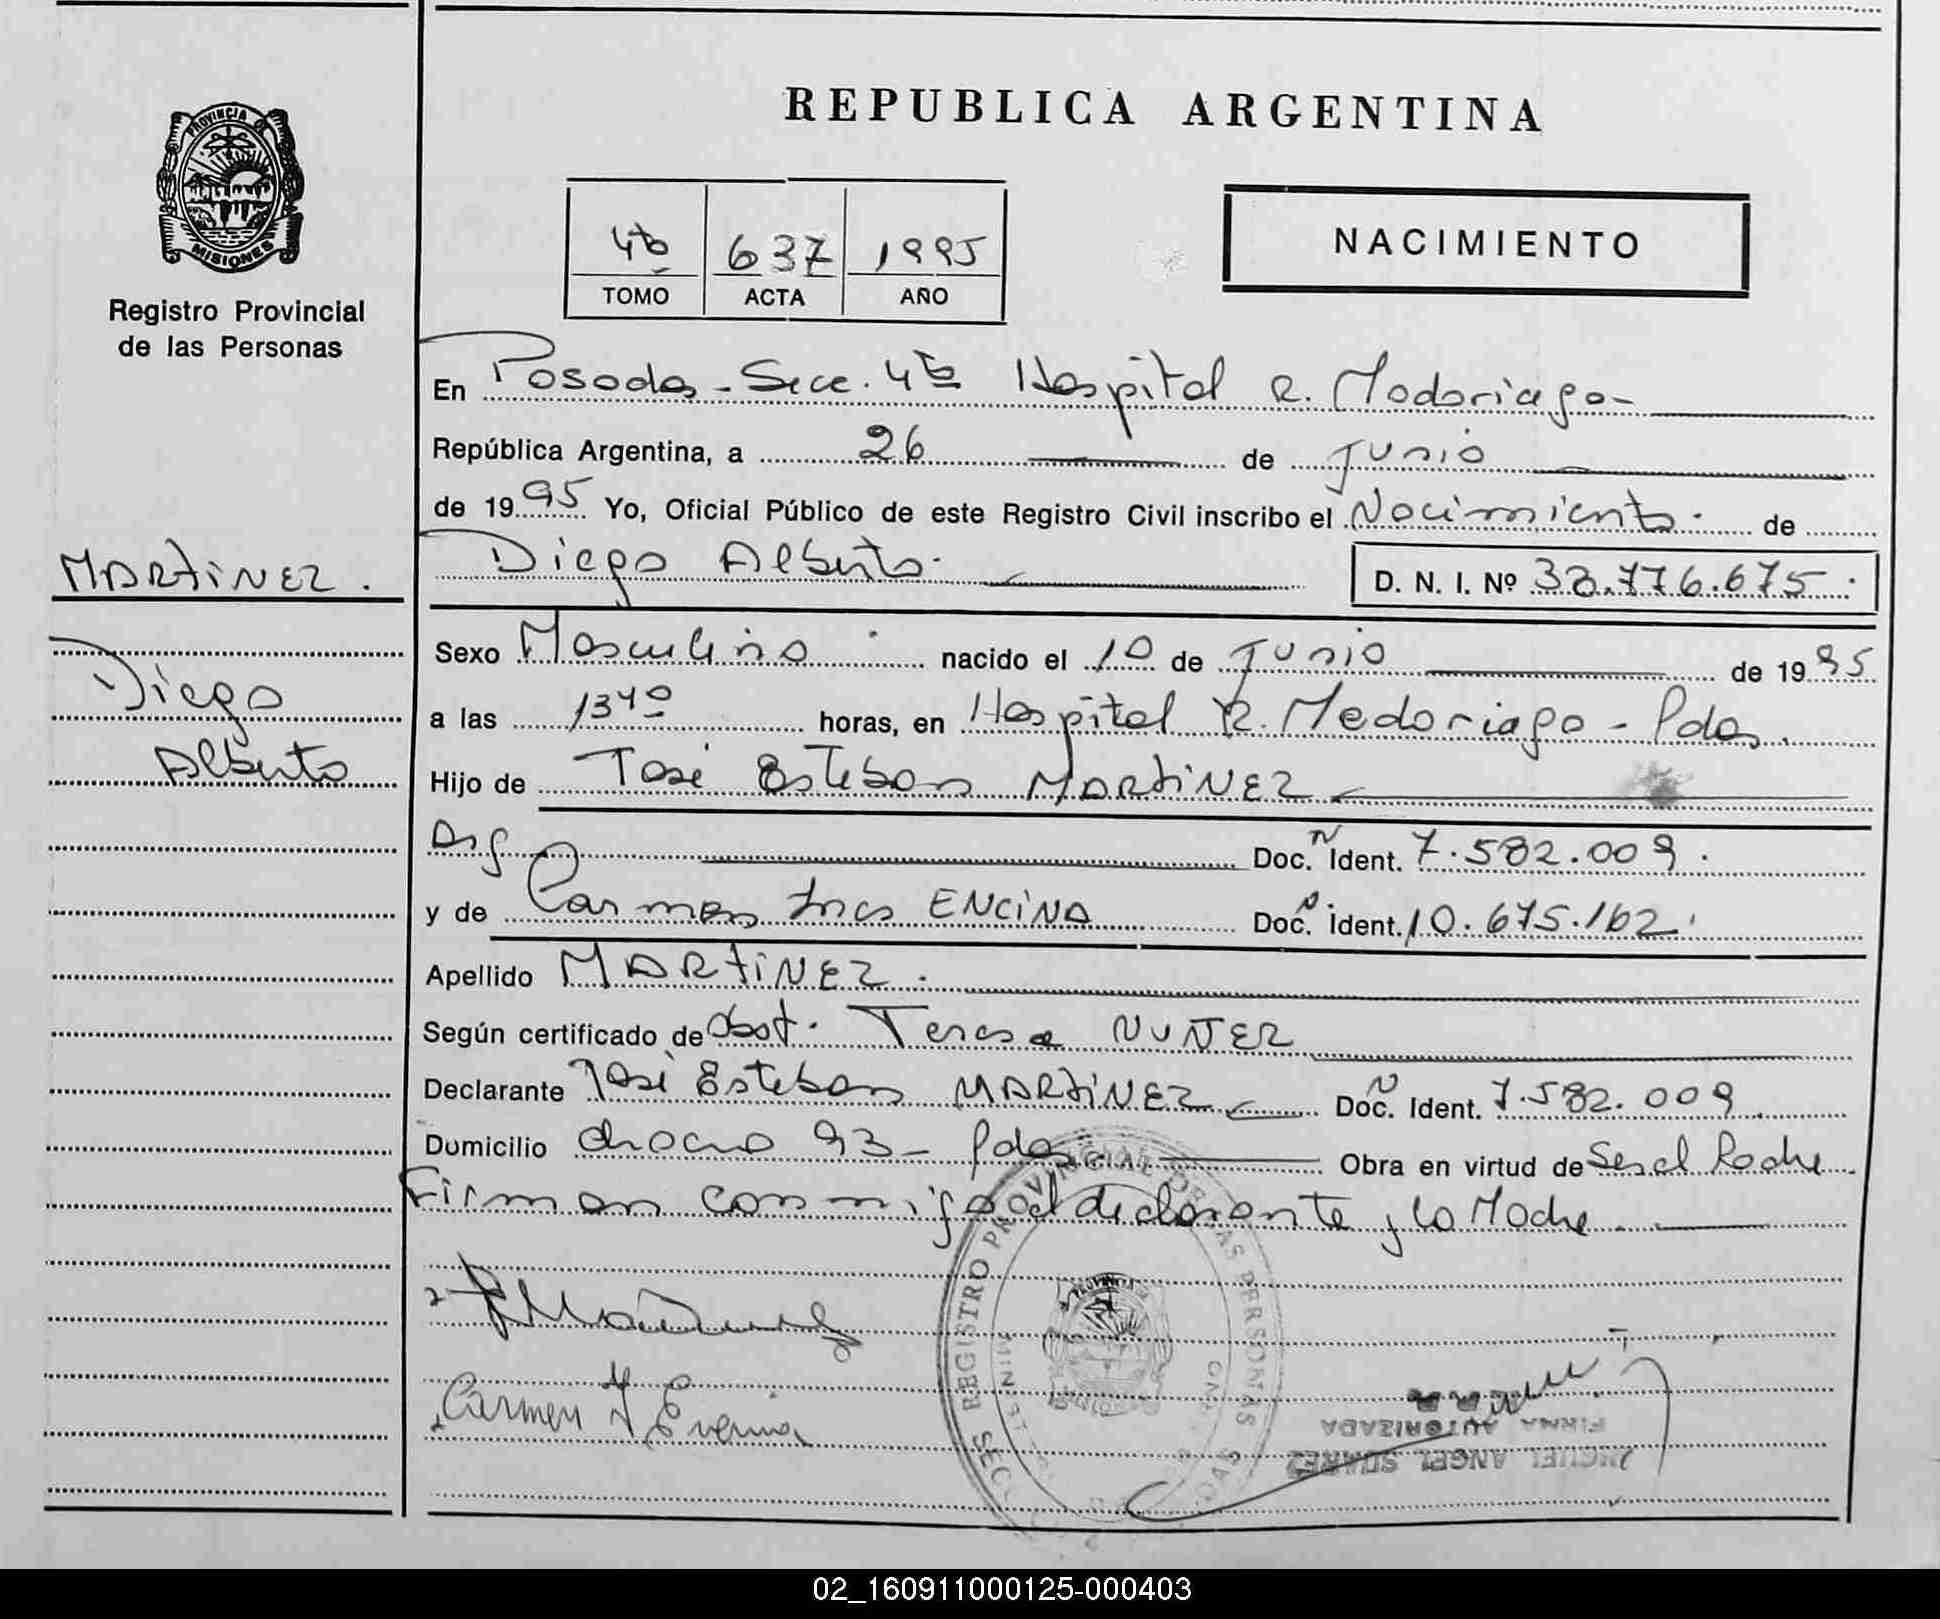 REPUBLICA ARGENTINA
PROVINCIA DE
MISIONES
Registro Provincial
de las Personas
4ta 637 1995
TOMO ACTA AÑO
NACIMIENTO
En Posadas - Secc. 4ta Hospital R. Madariaga -
República Argentina, a 26 de Junio
de 1995 Yo, Oficial Público de este Registro Civil inscribo el Nacimiento. de
MARTINEZ.
Diego Alberto.
D. N. I. Nº 38.776.675.
Sexo Masculino nacido el 10 de Junio de 1995
Diego
a las 13 40 horas, en Hospital R. Madariaga - Pdas.
Alberto
Hijo de José Esteban MARTINEZ
Arg Doc. N Ident. 7.582.009.
y de Carmen Ines ENCINA Doc. N. Ident. 10.675.162.
Apellido MARTINEZ.
Según certificado de Obst. Teresa NUÑEZ
Declarante José Esteban MARTINEZ Doc. N Ident. 7.582.009
Domicilio chacra 93 - Pdas. Obra en virtud de Ser el Padre
Firman conmigo el declarante y la Madre
REGISTRO PROVINCIAL DE LAS PERSONAS
Carmen I Encina
FIRMA AUTORIZADA
MIGUEL ANGEL SUAREZ
02_160911000125-000403